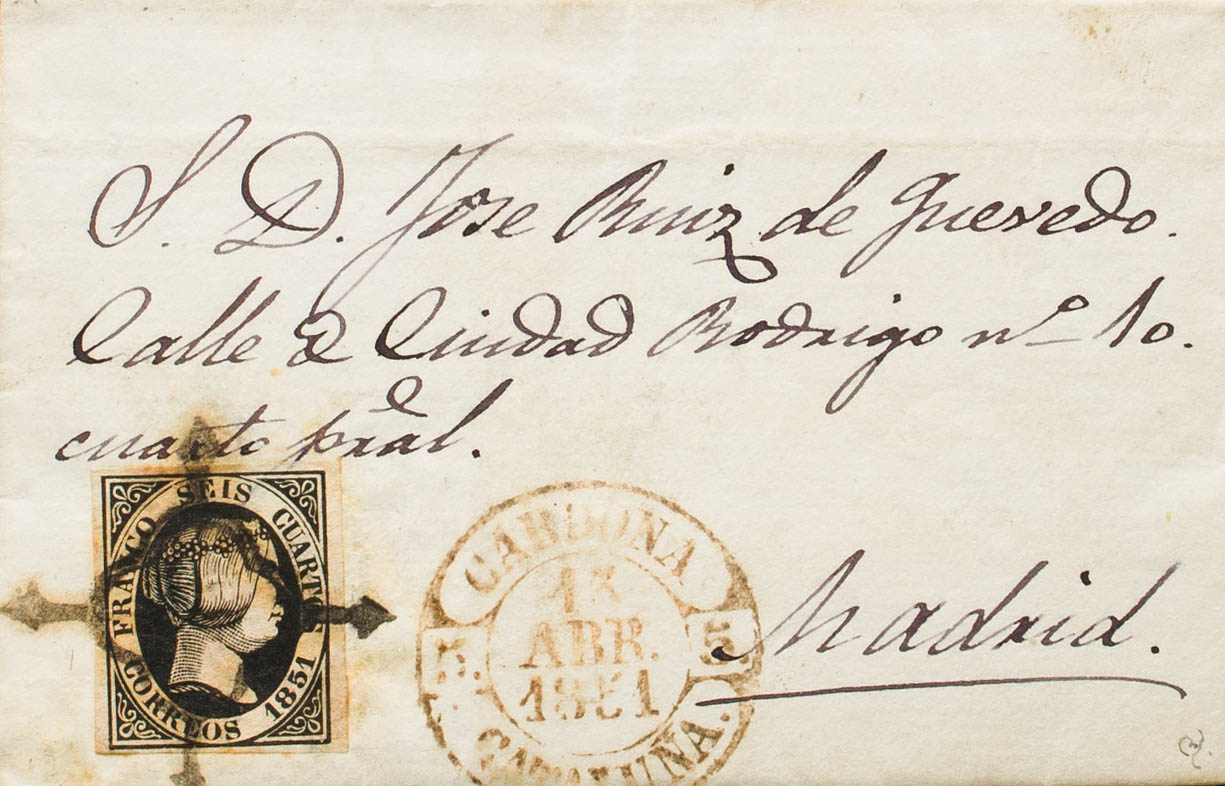 S. D. Jose Ruiz de Quevedo.
Calle d Ciudad Rodrigo nº 10.
cuarto pral.
FRANCO SEIS CUARTOS
CORREOS 1851
CARDONA
13
ABR.
1851
5 5
CATALUNA.
Madrid.